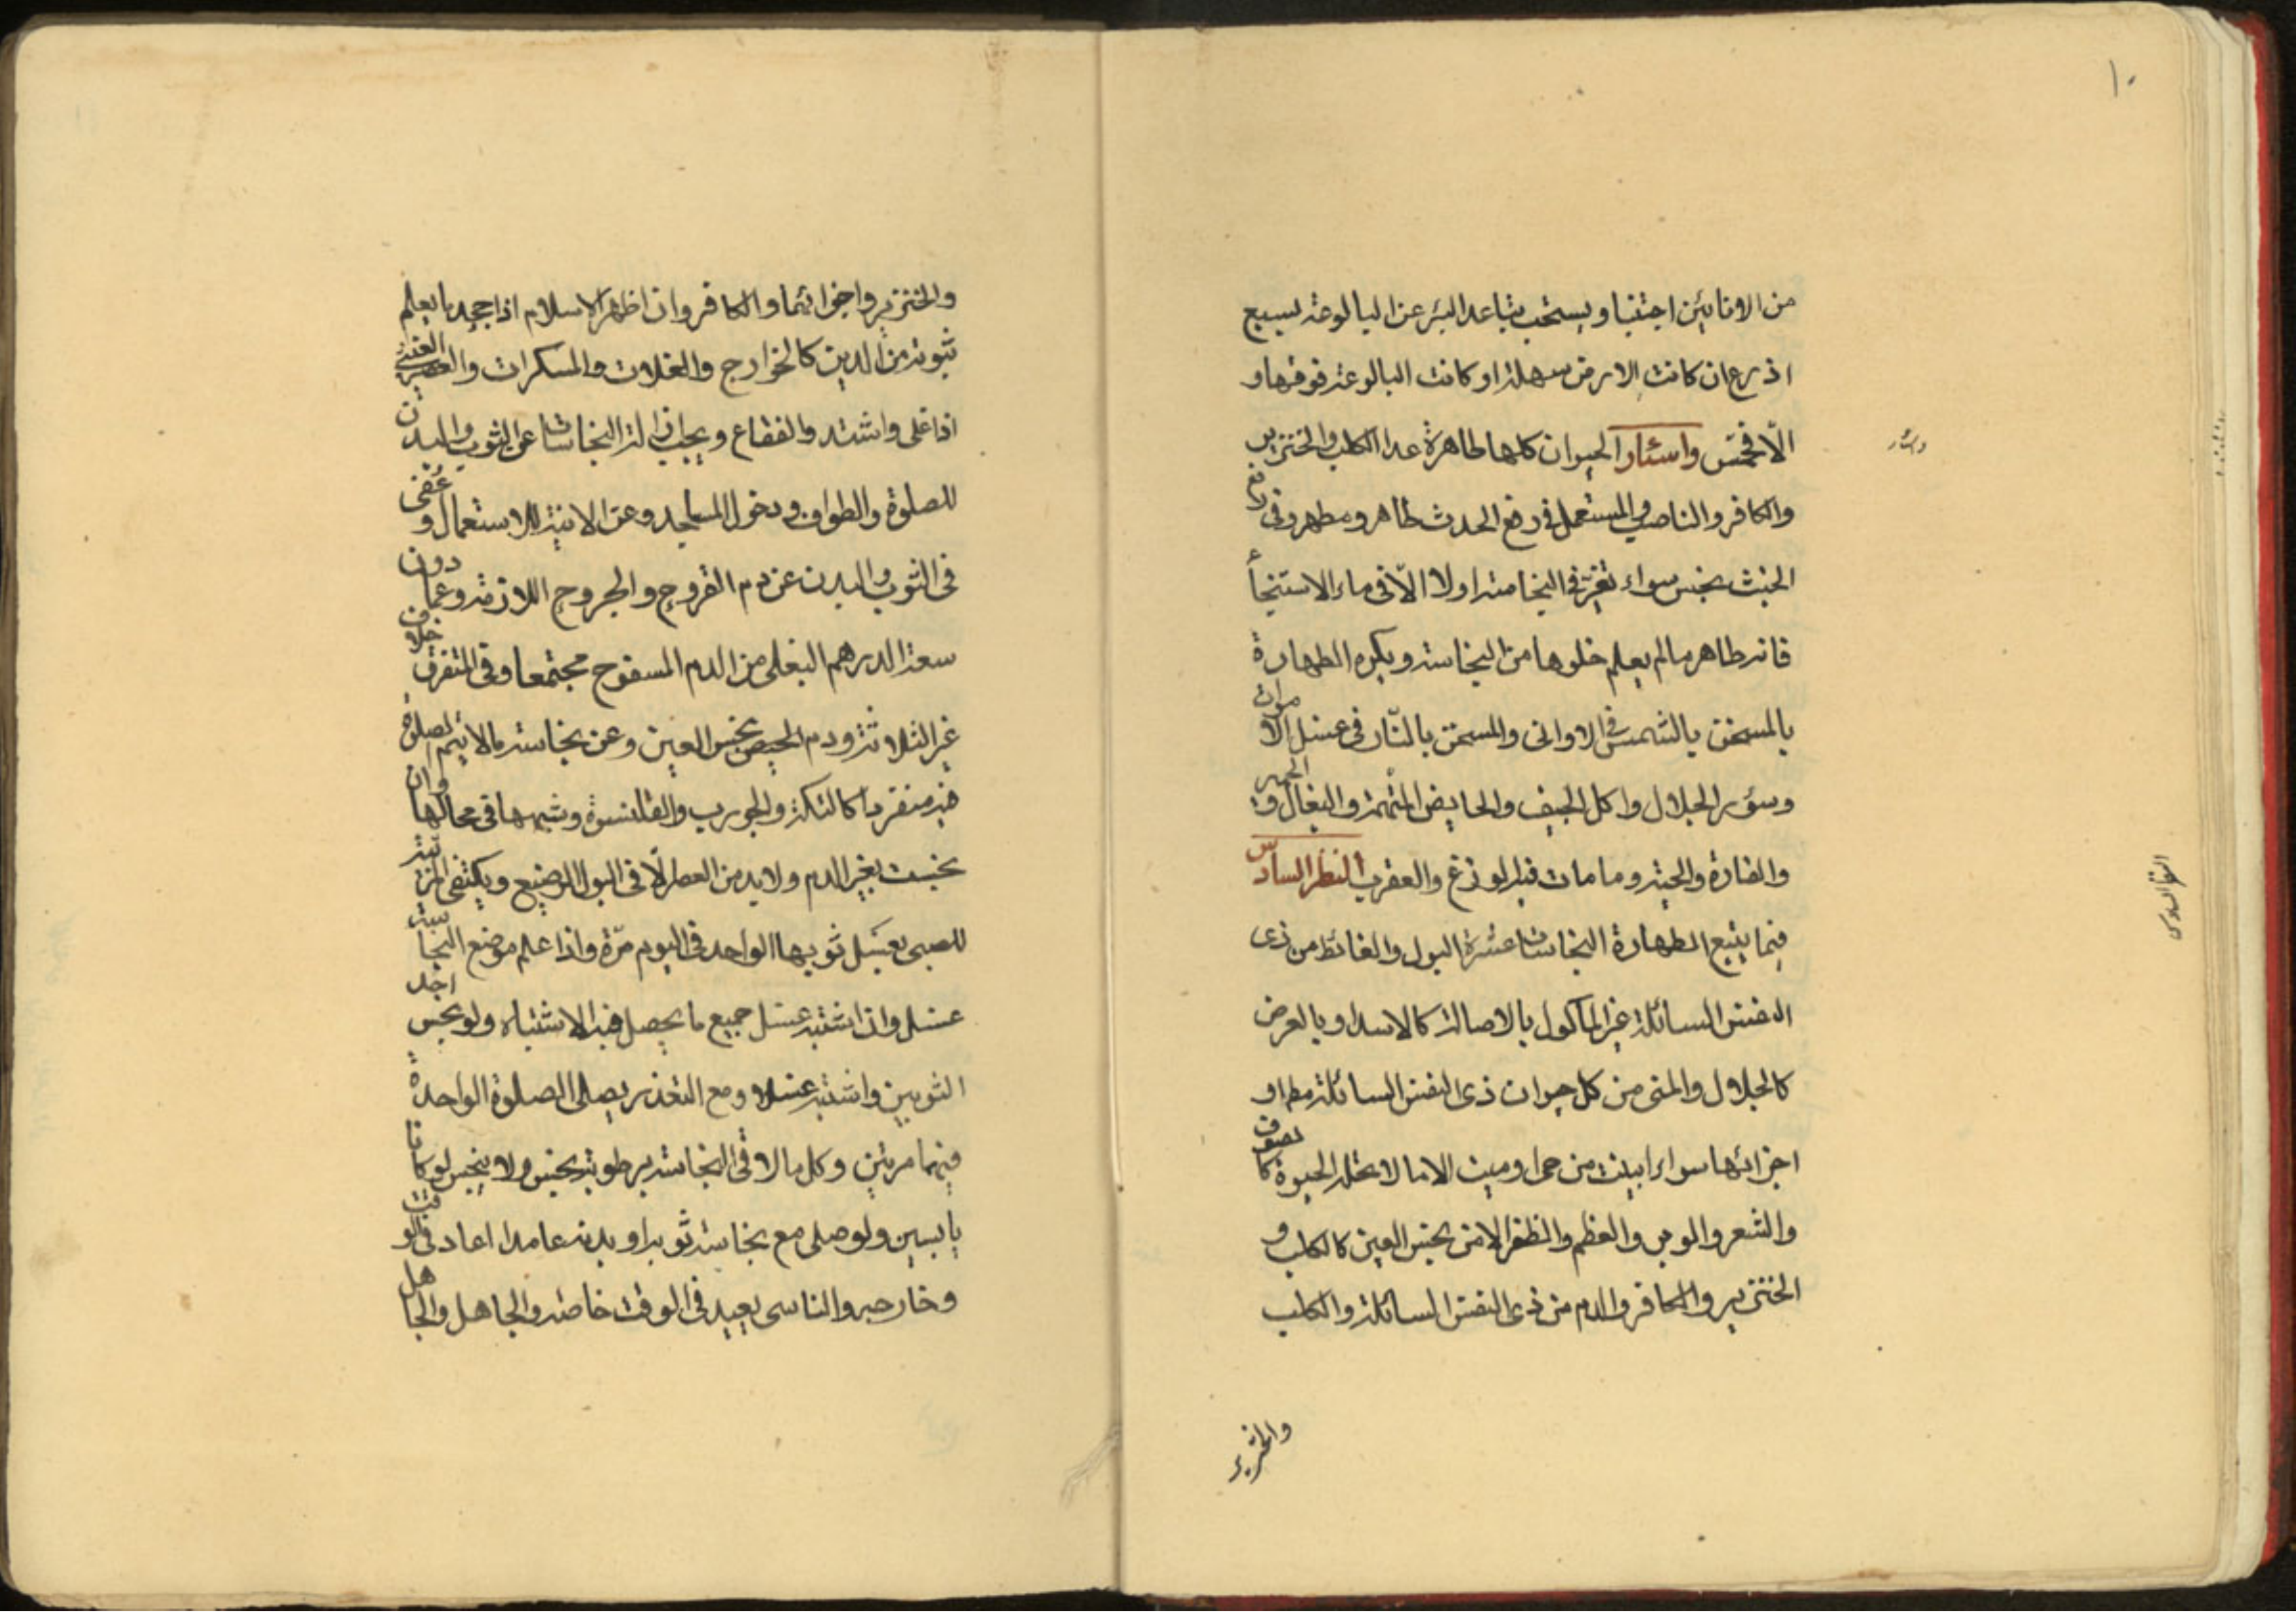 ١٠
من الانائين اجتنبا ويستحب تباعد البئر عن البالوعة بسبع
اذرع ان كانت الارض سهلة او كانت البالوعة فوقها و
الّا فخمس واسئار الحيوان كلها طاهرة عدا الكلب والخنزير
والكافر والناصبي والمستعمل في رفع الحدث طاهر ومطهر وفي رفع
الخبث نجس سواء تغير في النجاسة او لا الّا في ماء الاستنجاء
فانه طاهر ما لم يعلم خلوها من النجاسة ويكره الطهارة
بالمسخن بالشمس في الاواني والمسخن بالنّار في غسل الاموات
وسؤر الجلال واكل الجيف والحايض المتّهمة والبغال والحمير
والفارة والحية وما مات فيه الوزغ والعقرب النظر السادس
فيما يتبع الطهارة النجاسات عشرة البول والغائط من ذى
النفس السائلة غير الماكول بالاصالة كالاسد او بالعرض
كالجلال والمنى من كل حيوان ذى النفس السائلة مط او
اجزائها سواء ابينت من حى او ميت الا ما لا تحله الحيوة كالصوف
والشعر والوبر والعظم والظفر الا من نجس العين كالكلب و
الخنزير والكافر والدم من ذى النفس السائلة والكلب
والخنزير
واسئار
النظر السادس
والخنزير واجزائهما والكافر وان اظهر الاسلام اذا جحد ما يعلم
ثبوته من الدين كالخوارج والغلات والمسكرات والعصير العنبى
اذا غلى واشتد والفقاع ويجب ازالة النجاسات عن الثوب والبدن
للصلوة والطواف ودخول المساجد وعن الانية للاستعمال وعفى
فى الثوب والبدن عن دم القروح والجروح اللازمة وعما دون
سعة الدرهم البغلى من الدم المسفوح مجتمعا وفى المتفرق خلاف
غير الثلاثة ودم الحيض نجس العين وعن نجاسة ما لا يتم الصلوة
فيه منفردا كالتكة والجورب والقلنسوة وشبهها فى محالها وان
نجست بغير الدم ولا بد من العصر الّا فى البول الرضيع ويكتفى المربية
للصبى بغسل ثوبها الواحد فى اليوم مرّة واذا علم موضع النجاسة
غسل واذا اشتبه غسل جميع ما يحصل فيه الاشتباه ولو نجس احد
الثوبين واشتبه غسلا ومع التعذر يصلى الصلوة الواحدة
فيهما مرتين وكل ما لاقى النجاسة برطوبة نجس ولا ينجس لو كانا
يابسين ولو صلى مع نجاسة ثوبه او بدنه عامدا اعاد فى الوقت
وخارجه والناسى يعيد فى الوقت خاصة والجاهل والجاهل